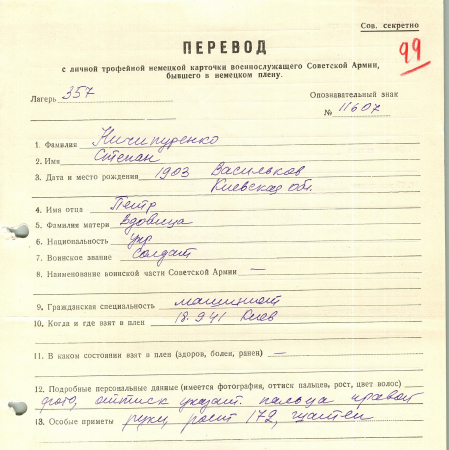 Сов. секретно
99
ПЕРЕВОД
с личной трофейной немецкой карточки военнослужащего Советской Армии,
бывшего в немецком плену.
Лагерь 357
Опознавательный знак
№ 11607
1. Фамилия Ничипуренко
2. Имя Степан
3. Дата и место рождения 1903 Васильков
Киевская обл.
4. Имя отца Петр
5. Фамилия матери Вдовица
6. Национальность укр
7. Воинское звание солдат
8. Наименование воинской части Советской Армии —
9. Гражданская специальность машинист
10. Когда и где взят в плен 18.9 41 Киев
11. В каком состоянии взят в плен (здоров, болен, ранен) —
12. Подробные персональные данные (имеется фотография, оттиск пальцев, рост, цвет волос)
фото, оттиск указат. пальца правой
13. Особые приметы руки рост 172,